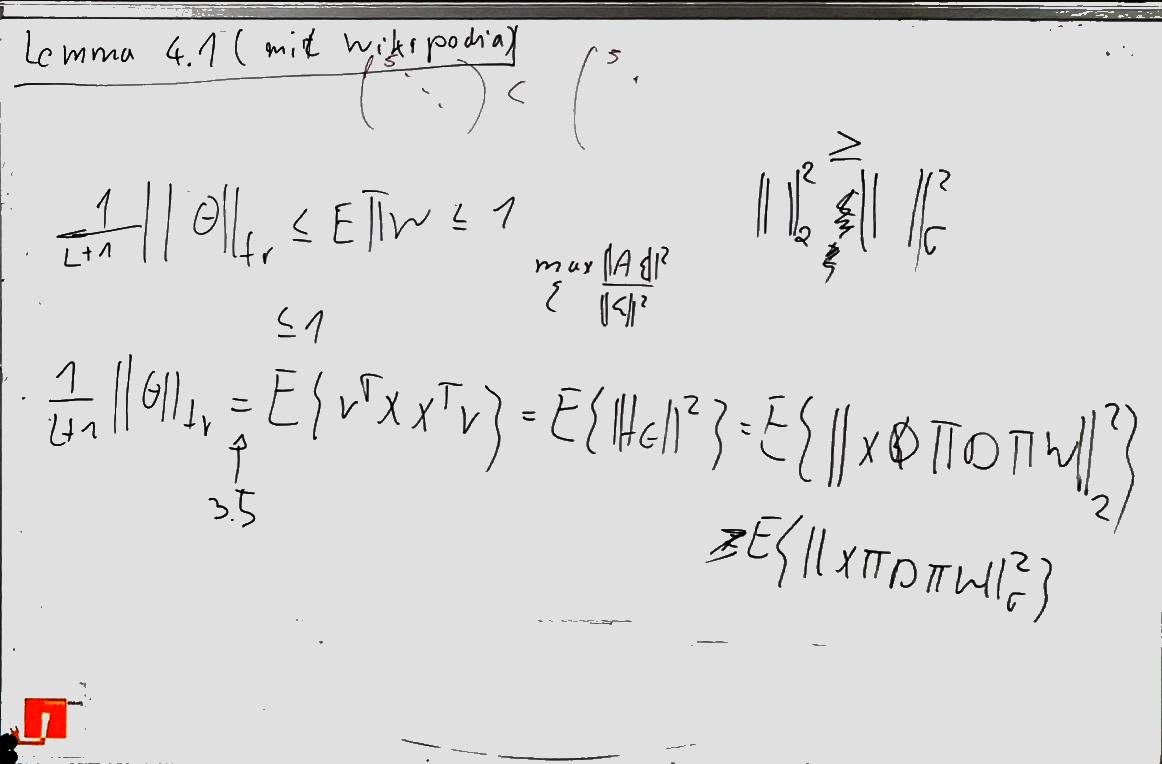 Lemma 4.1 (mit wikipodia)
( 5 ⋱ ) < ( 5 .
1/(L+1) ||θ||_fr ≤ E ΠW ≤ 1
|| ||_2^2 ≥ || ||_σ^2
max_ξ ||Aξ||²/||ξ||²
≤ 1
1/(L+1) ||θ||_fr = E{v^T X X^T v} = E{||H_G||²} = E{||X ΠDΠW||_2^2}
↑
3.5
E{||XΠDΠW||_σ^2}